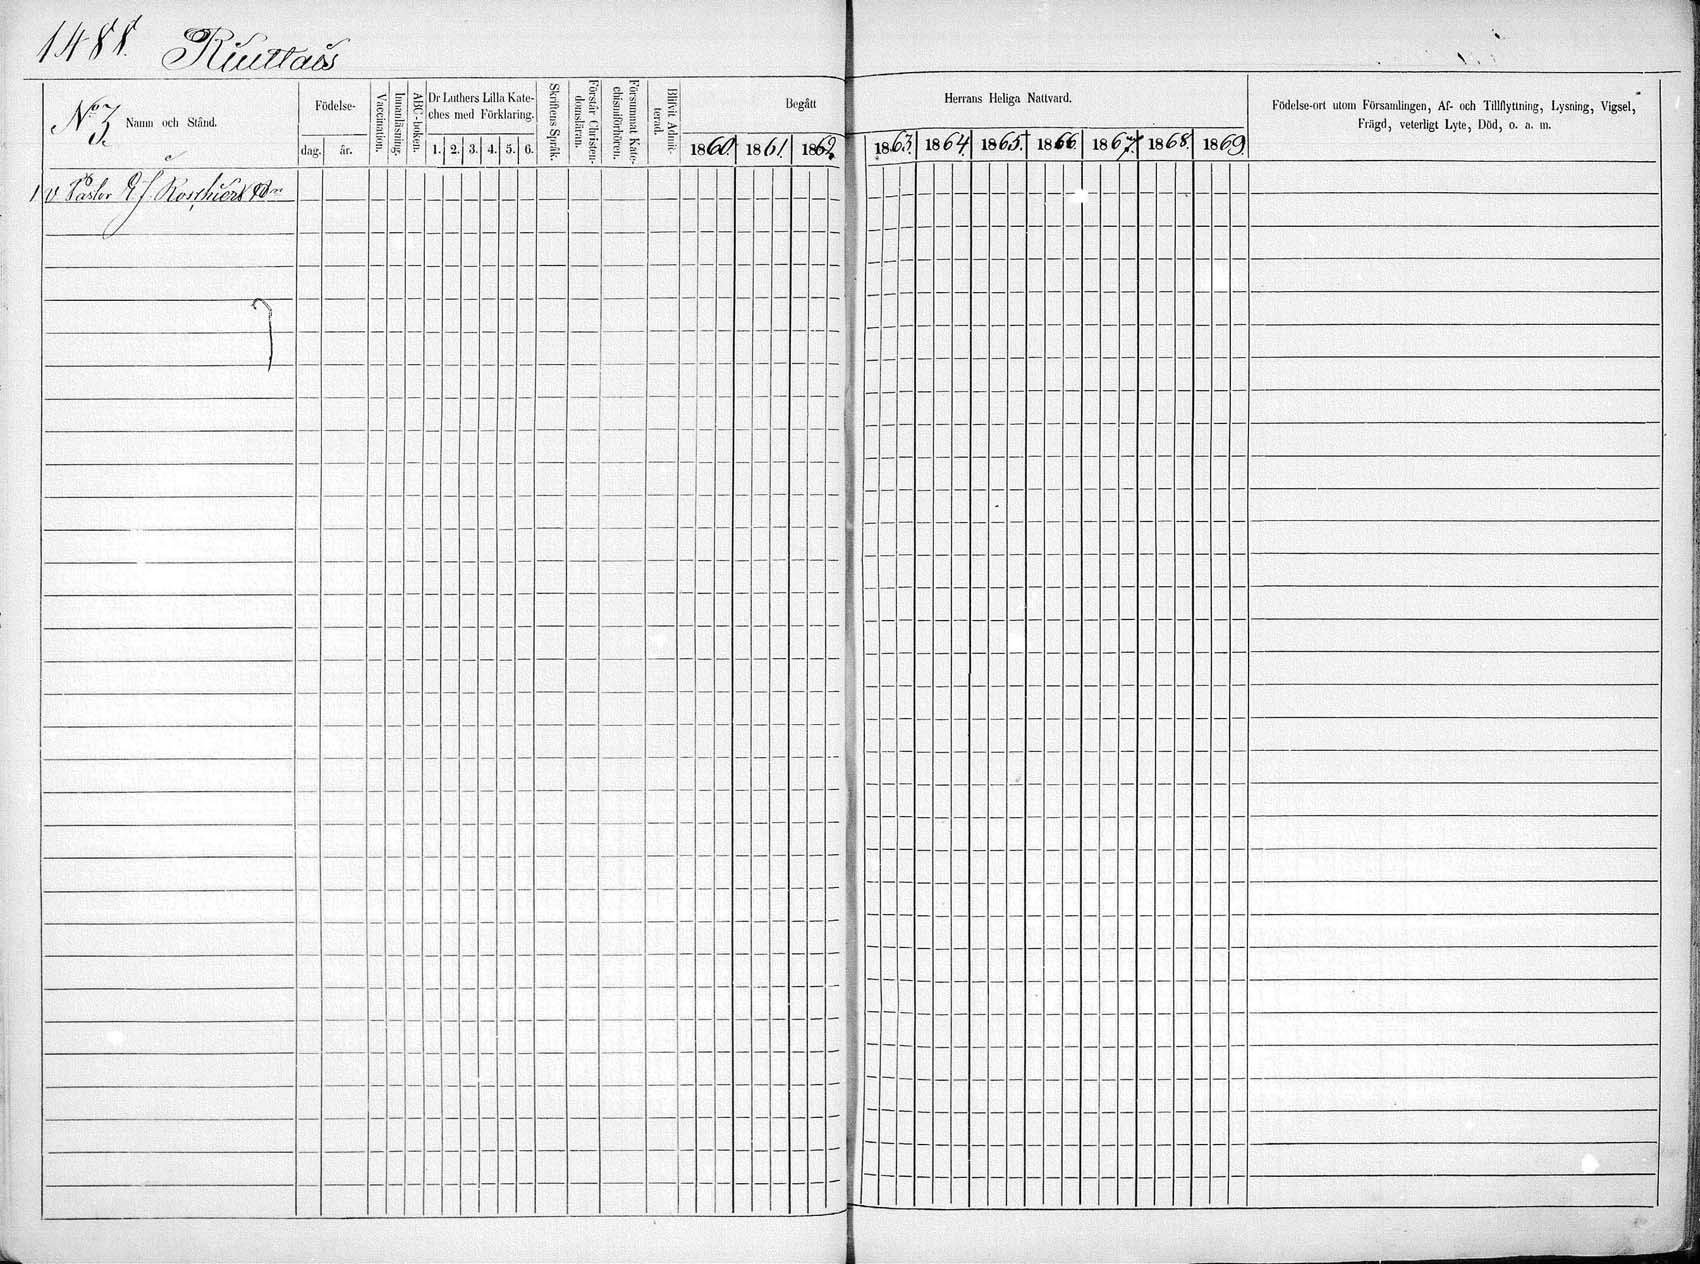 1488. Ruuttais
Nº 3.
Namn och Stånd.
Födelse-
dag. år.
Vaccination.
Innanläsning.
ABC-boken.
Dr Luthers Lilla Kate-
ches med Förklaring.
1. 2. 3. 4. 5. 6.
Skriftens Språk.
Förstår Christen-
domsläran.
Försummat Kate-
chismiförhören.
Blifvit Admit-
terad.
Begått
1860. 1861. 1862.
Herrans Heliga Nattvard.
1863. 1864. 1865. 1866. 1867. 1868. 1869.
Födelse-ort utom Församlingen, Af- och Tillflyttning, Lysning, Vigsel,
Frägd, veterligt Lyte, Död, o. a. m.
1 v. Pastor